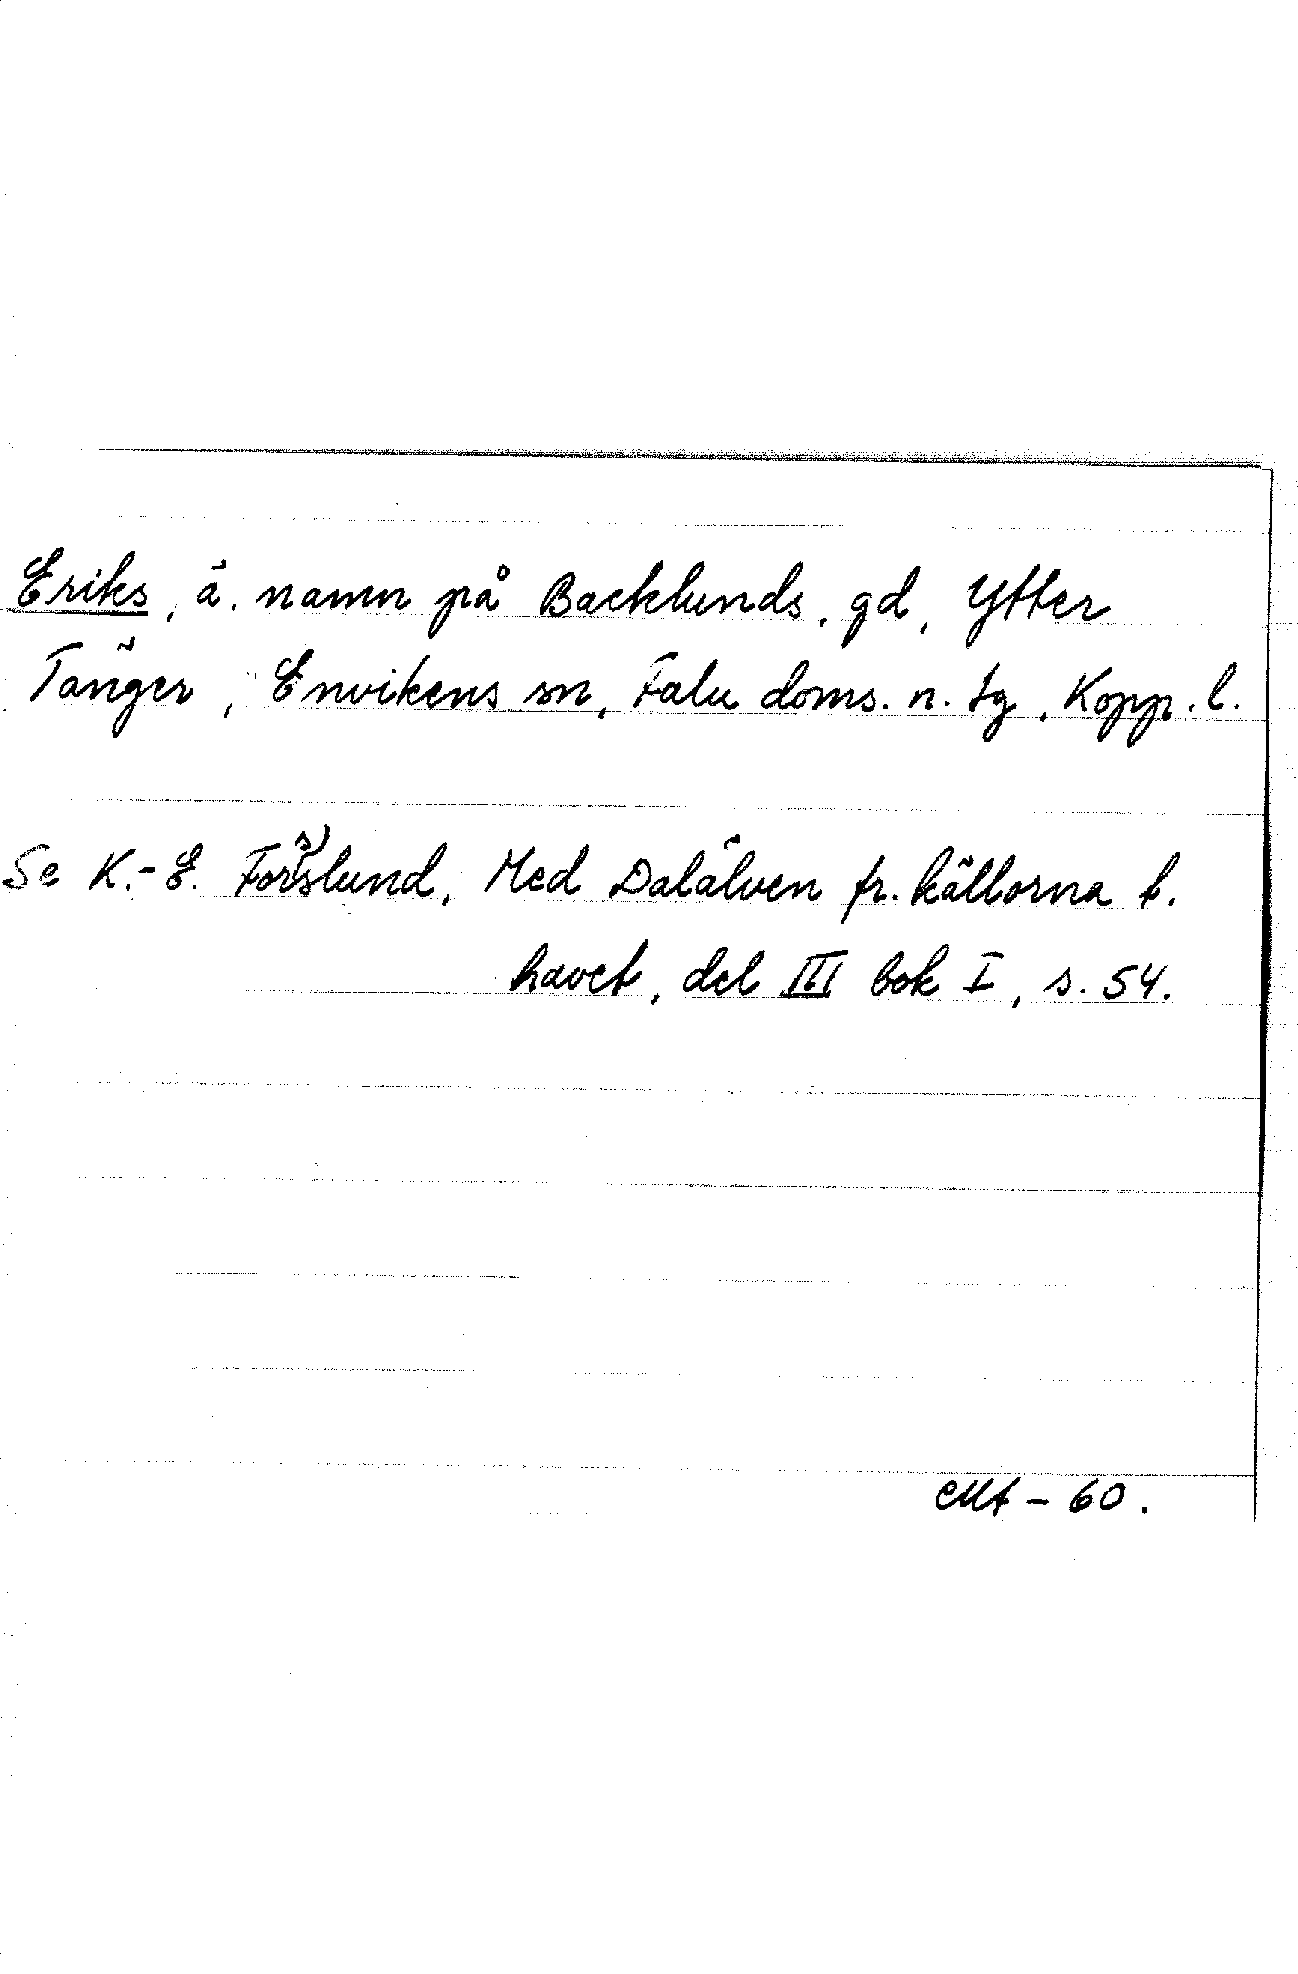 Eriks, ä. namn på Backlunds, gd, Ytter
Tänger, Envikens sn, Falu doms. n. tg, Kopp. l.
Se K.-E. Forsslund, Med Dalälven fr. källorna t.
havet, del III bok I, s. 54.
- 60.